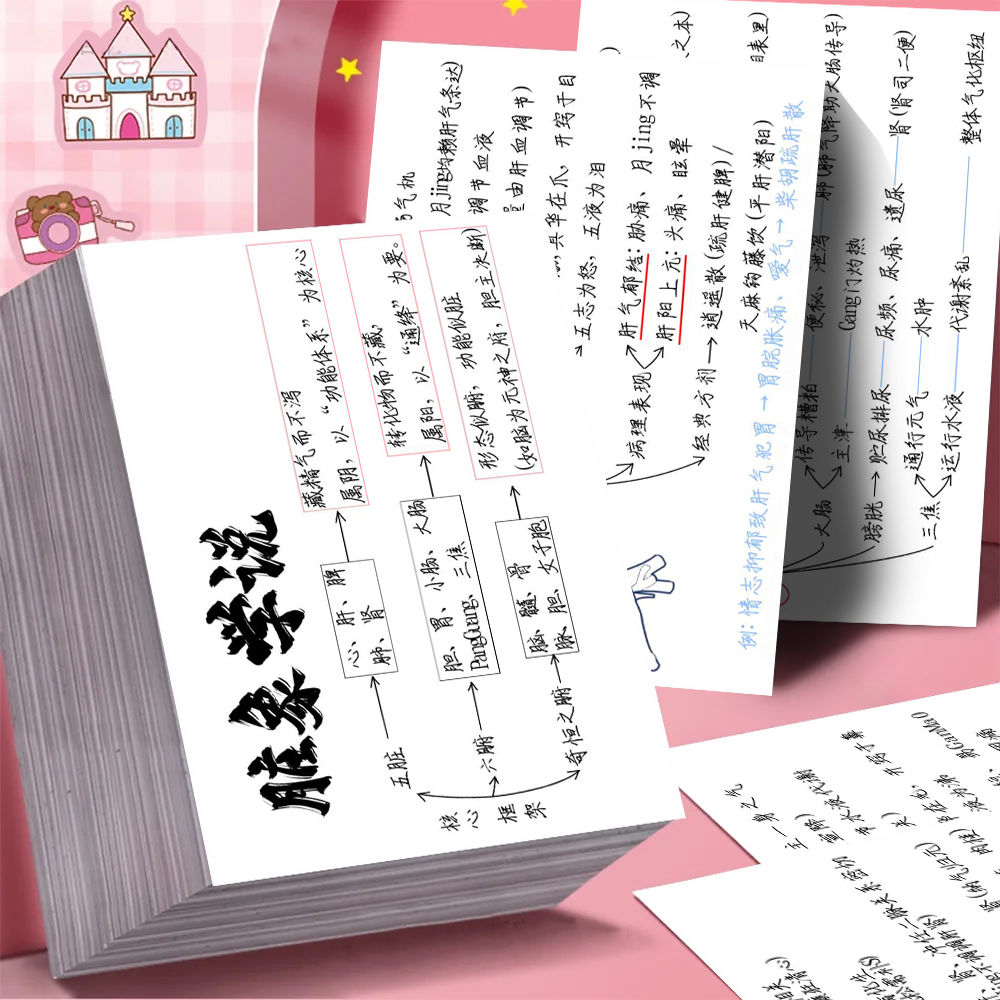 脏象学说
核心
框架
五脏
心、肝、脾
肺、肾
藏精气而不泻
属阴，以“功能体系”为核心
六腑
胆、胃、小肠、大肠
PangGuang、三焦
转化物而不藏，
属阳，以“通绛”为要。
奇恒之腑
脑、髓、骨
脉、胆、女子胞
形态似腑，功能似脏
(如脑为元神之府，胆主决断)
气机
月jing均赖肝气条达)
调节血液
由肝血调节)
其华在爪，开窍于目
五志为怒，五液为泪
病理表现
肝气郁结：胁痛、月jing不调
肝阳上亢：头痛、眩晕
经典方剂
逍遥散(疏肝健脾)/
天麻钩藤饮(平肝潜阳)
例：情志抑郁致肝气犯胃→胃脘胀痛、嗳气→柴胡疏肝散
之本)
表里)
大肠
传导糟粕
便秘、泄泻
肺(肺气降助大肠传导)
主津
Gang门灼热
膀胱
贮尿排尿
尿频、尿痛、遗尿
肾(肾司二便)
三焦
通行元气
水肿
运行水液
代谢紊乱
整体气化枢纽
主一身之气
节水液代谢
开窍于鼻
肾(纳气归元)